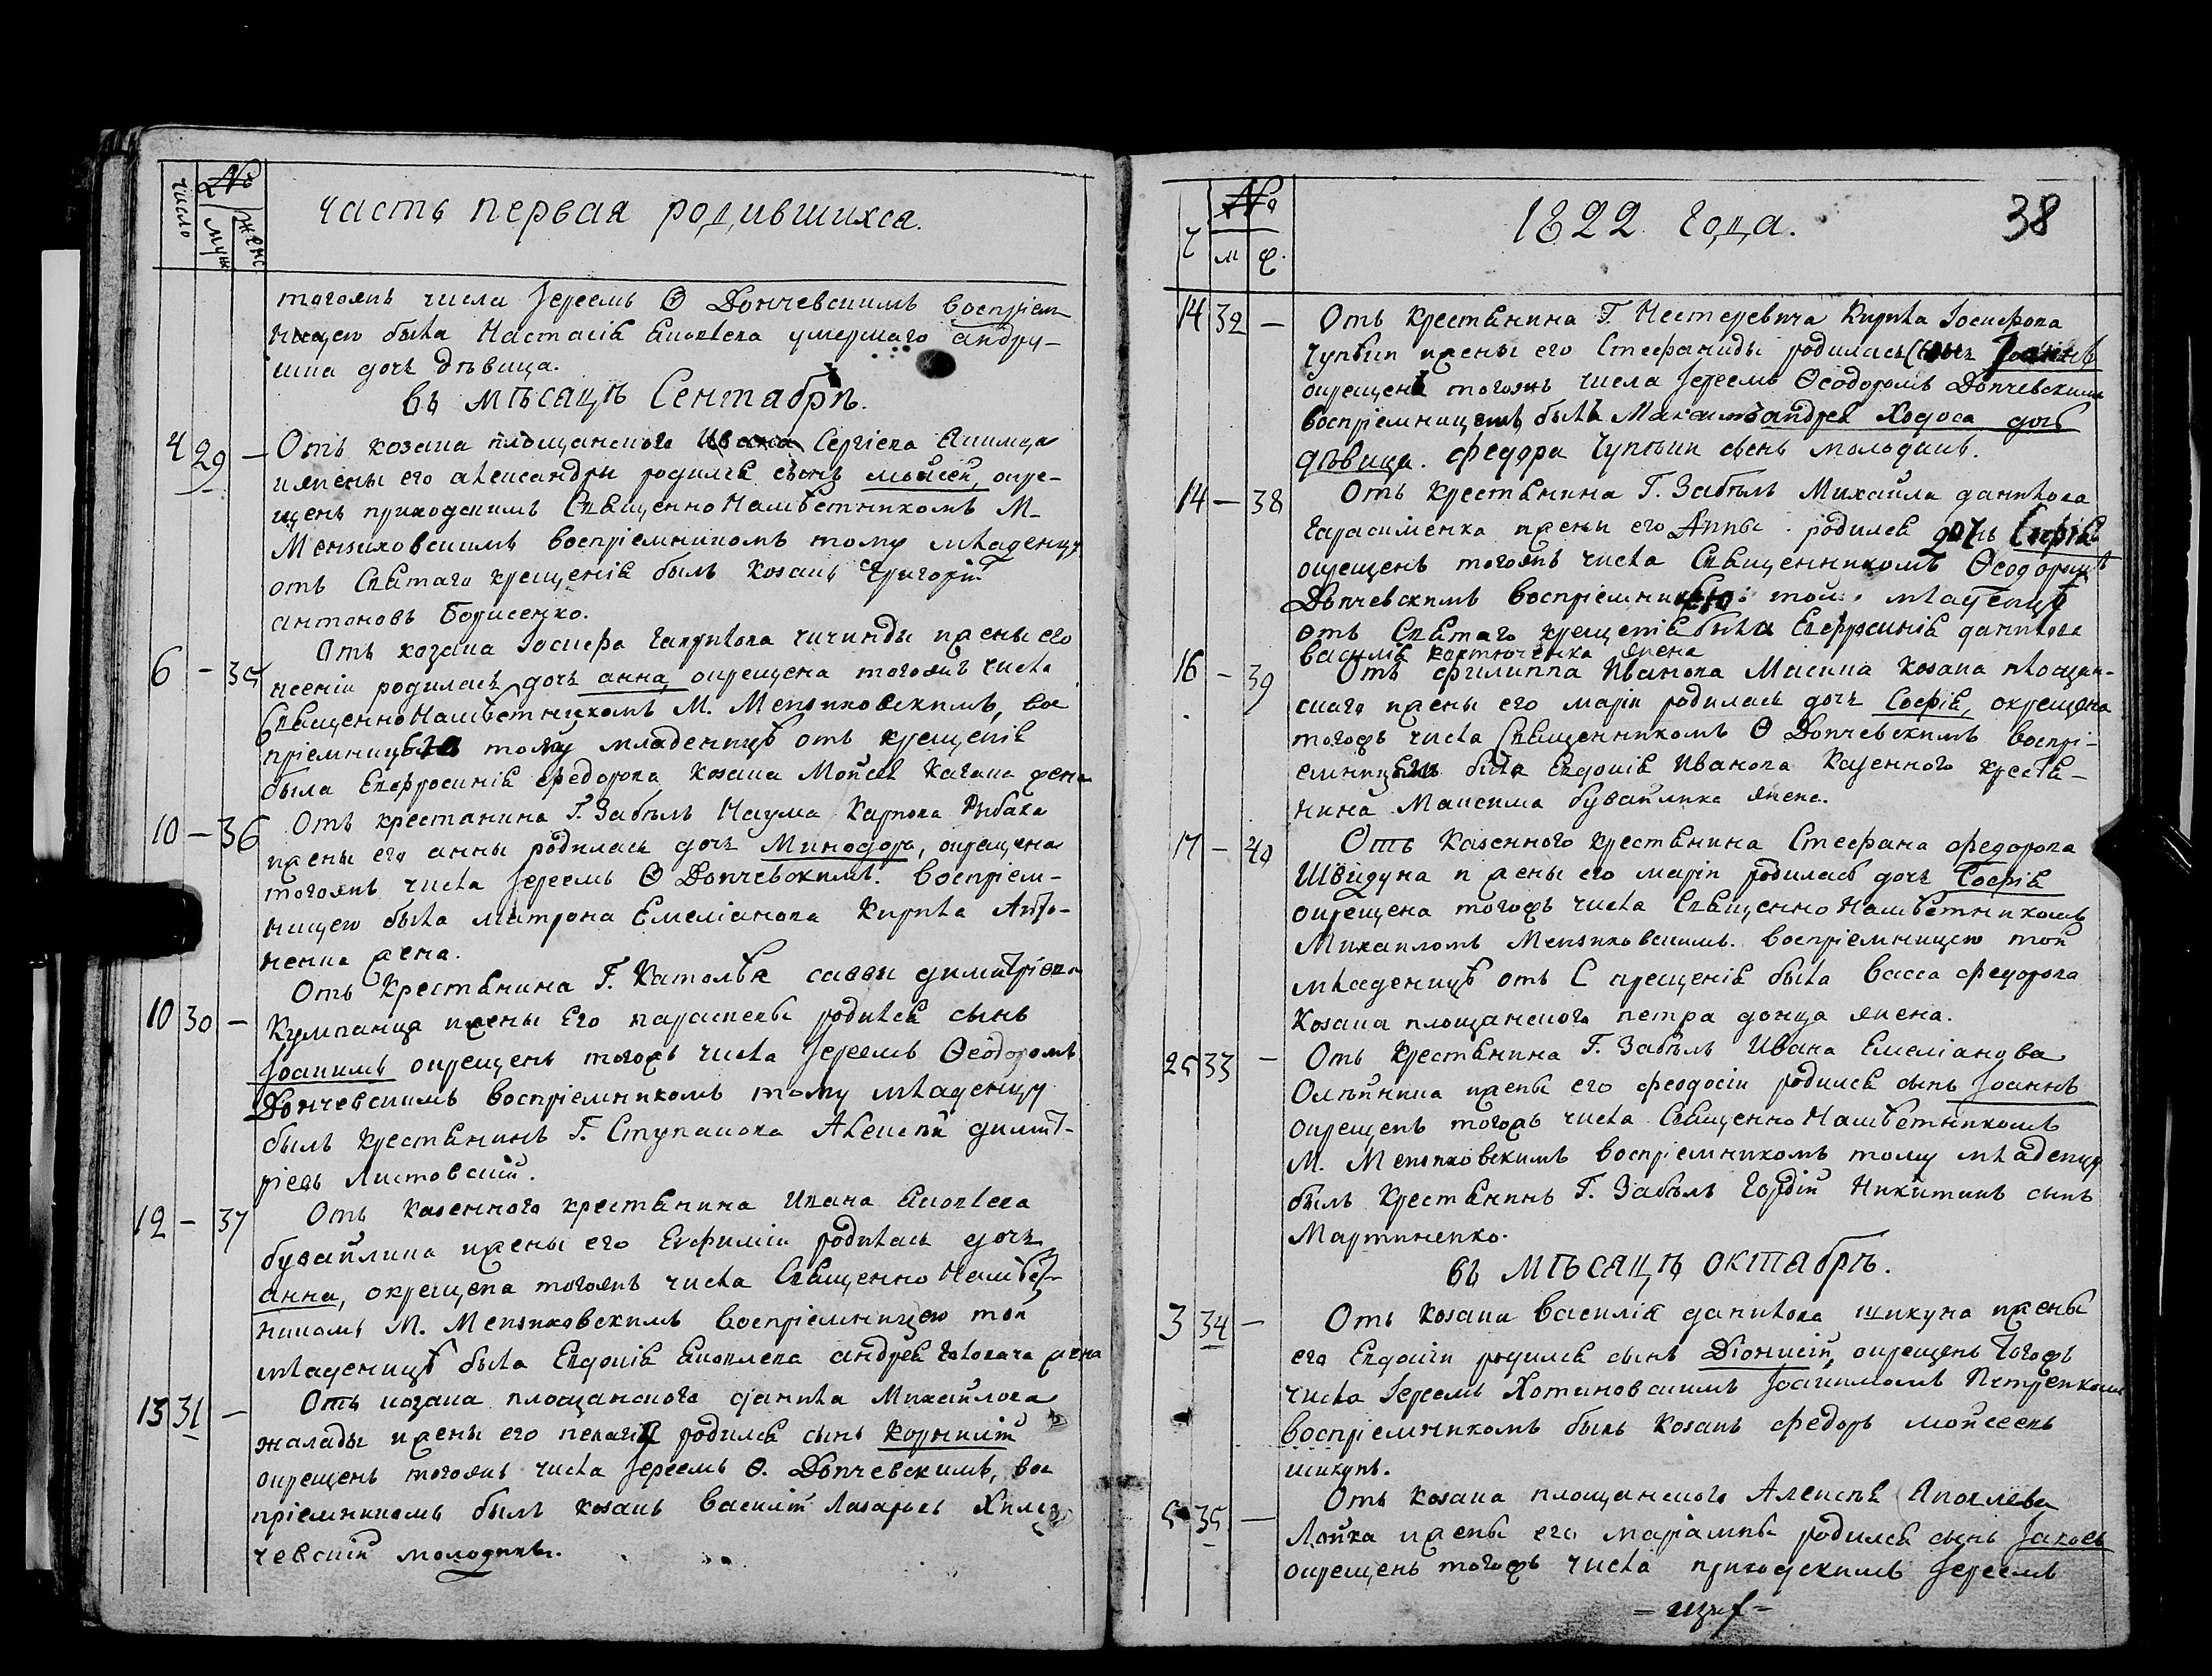 число № муж женс
часть первая родившихся.
тогожъ числа Іереемъ Ѳ Дончевскимъ воспріем
ницею была Настасія Яковлева умершаго андру-
шка дочь дѣвица.
въ мѣсацѣ Сентабрѣ.
4 29 — Отъ козака площанского Сергіева Якимца
и жены его александры родился сынъ мойсей, окре-
щенъ приходскимъ Священно Намѣстникомъ М-
Мензиковскимъ воспріемникомъ тому младенцу
отъ Святаго крещенія былъ козакъ Григорій
антоновъ Борисенко.
6 — 35 Отъ козака Іосифа Гаврилова чичинды жены его
ксеніи родилась дочь анна, окрещена тогожъ числа
Священно Намѣстникомъ М. Мензиковскимъ, вос
пріемницею тому младенцу отъ крещенія
была Евфросинія федорова козака Мойсея Кагана жена
10 — 36 Отъ крестанина Г. Забѣлъ Наума Карпова Рыбака
жены его анны родилась дочь Минодора, окрещена
тогожъ числа Іереемъ Ѳ Дончевскимъ. воспріем-
ницею была матрона Емеліанова Кирила
ненка жена.
10 30 — Отъ Крестянина Г. саввы димитріева
Кумпанца жены Его параскевы родился сынъ
Іоакимъ окрещенъ тогожъ числа Іереемъ Ѳеодоромъ
Дончевскимъ воспріемникомъ тому младенцу
былъ крестянинъ Г. Ступакова Алексѣй димит-
ріевъ Листовскій.
12 — 37 Отъ казенного крестянина Ивана Яковлева
бувайлика жены его Евфиміи родилась дочь
анна, окрещена тогожъ числа Священно Намѣст-
никомъ М. Мензиковскимъ воспріемницею той
младеницѣ была Евдокія Яковлева андрея Головача жена
13 31 — Отъ козака площанского данила Михайлова
жалады жены его пелагіи родился сынъ Корнилій
окрещенъ тогожъ числа Іереемъ Ѳ. Дончевскимъ, вос
пріемникомъ былъ козакъ василій Лазаревъ
чевскій молодикъ.
Ч № м ж.
1822 года. 38
14 32 — Отъ крестянина Г. Нестеревича Кирила Іосифова
Чупѣки жены его Стефаниды родилась
окрещенъ тогожъ числа Іереемъ Ѳеодоромъ Дончевскимъ
воспріемницею былъ андрея Ходоса дочь
дѣвица. федора Чупѣки сынъ молодикъ.
14 — 38 Отъ крестянина Г. Забѣлъ Михайла данилова
Гарасименка жены его Анны родился дочь Софія
окрещенъ тогожъ числа Священникомъ Ѳеодоромъ
Дончевскимъ воспріемницею той младеницѣ
отъ Святаго крещенія была Евфросинія данилова
василія жена
16 — 39 Отъ филиппа Иванова Масика козака площан-
скаго жены его маріи родилась дочь Софія, окрещена
тогожъ числа Священникомъ Ѳ Дончевскимъ воспрі-
емницею была Евдокія Иванова Казенного крестя-
нина Максима бувайлика жена.
17 — 40 Отъ казенного крестянина Стефана федорова
Швидуна и жены его маріи родилась дочь Софія
окрещена тогожъ числа Священно Намѣстникомъ
Михаиломъ Мензиковскимъ. воспріемницею той
младеницѣ отъ С крещенія была Васса федорова
Козака площанского петра донца жена.
25 33 — Отъ крестянина Г. Забѣлъ Ивана Емеліанова
Олѣйника жены его феодосіи родился сынъ Іоаннъ
окрещенъ тогожъ числа Священно Намѣстникомъ
М. Мензиковскимъ воспріемникомъ тому младенцу
былъ крестянинъ Г. Забѣлъ Гордій Никитинъ сынъ
Мартиненко.
въ мѣсацѣ октабрѣ.
3 34 — Отъ козака василія данилова шикуна жены
его Евдокіи родился сынъ Діонисій, окрещенъ тогожъ
числа Іереемъ Хотиновскимъ Іоакимомъ Петренкомъ
воспріемникомъ былъ козакъ федоръ мойсеевъ
шикунъ.
5 35 — Отъ козака площанского Алексѣя Яковлева
Лойка жены его маріамны родился сынъ Іаковъ
окрещенъ тогожъ числа приходскимъ Іереемъ